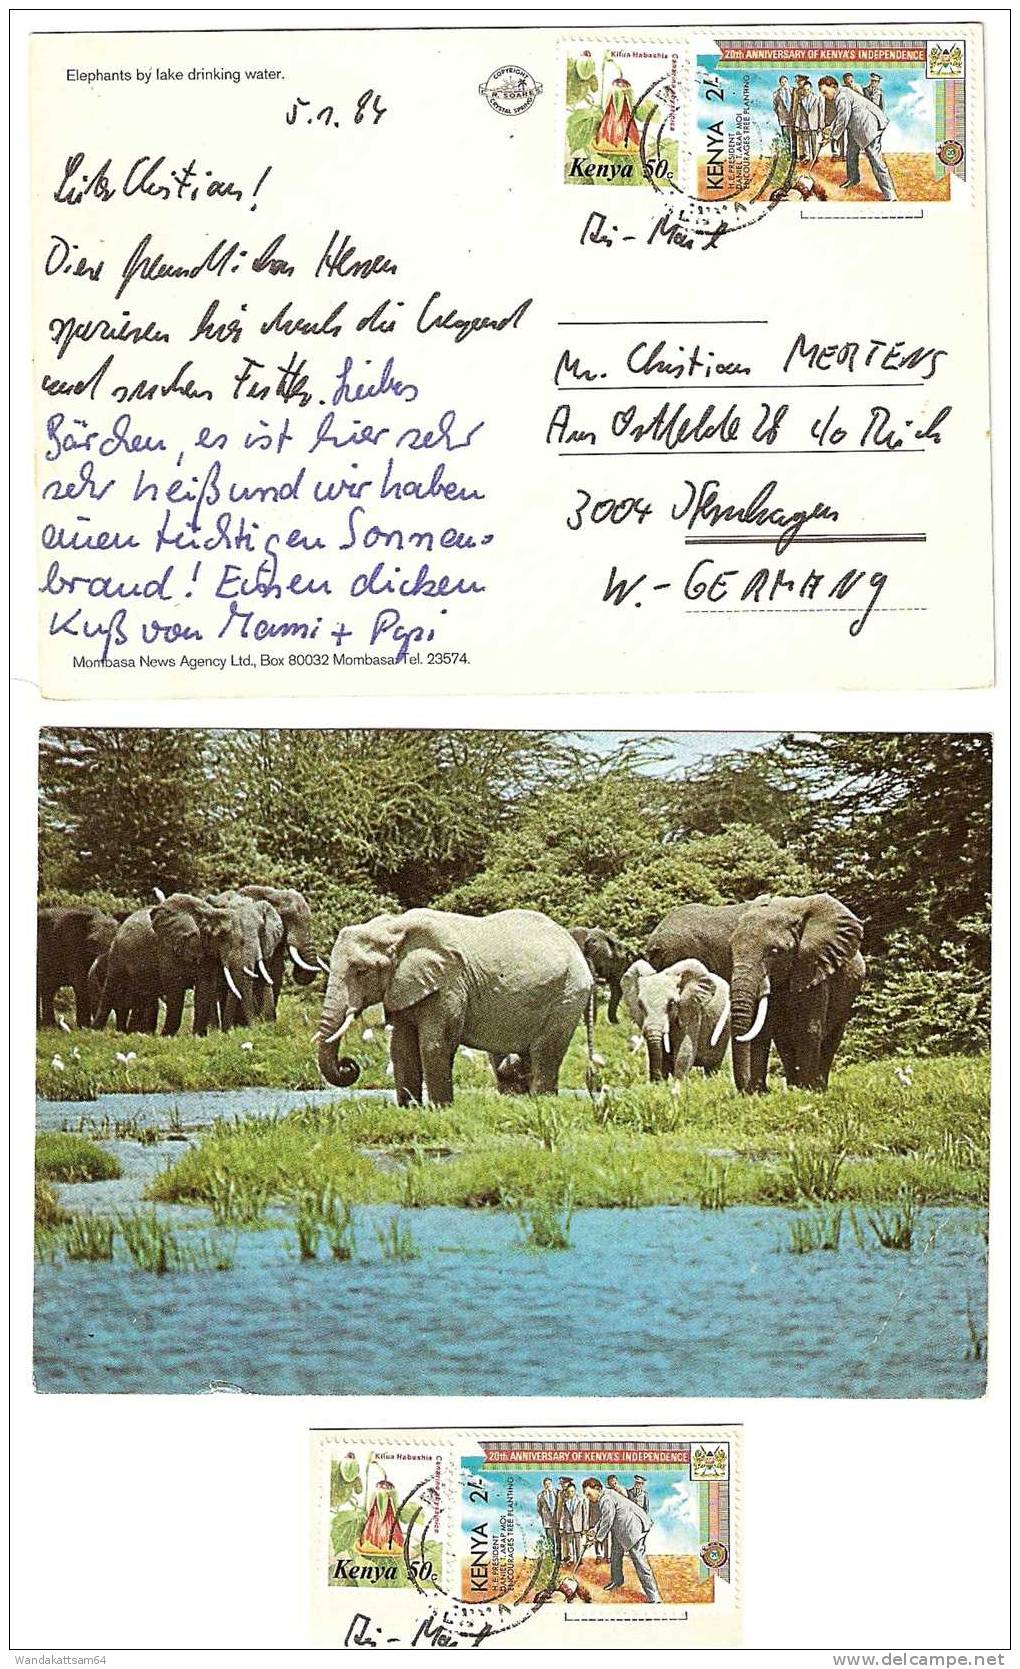 Elephants by lake drinking water.
5.1.84
COPYRIGHT
CRYSTAL SPRING
Kifua Habashia
Canarina abyssinica
Kenya 50c
20th ANNIVERSARY OF KENYA'S INDEPENDENCE
KENYA 2/-
H.E. PRESIDENT
DANIEL T. ARAP MOI
ENCOURAGES TREE PLANTING
KENYA
Air-Mail
Lieber Christian!
Diese freundlichen Herren
spazieren hier durch die Gegend
und suchen Futter. Liebes
Bärchen, es ist hier sehr
sehr heiß und wir haben
einen tüchtigen Sonnen-
brand! Einen dicken
Kuß von Mami + Papi
Mombasa News Agency Ltd., Box 80032 Mombasa. Tel. 23574.
Mr. Christian MERTENS
Am Ostfelde 28 c/o
3004 Isernhagen
W.-GERMANY
Kifua Habashia
Canarina abyssinica
Kenya 50c
20th ANNIVERSARY OF KENYA'S INDEPENDENCE
KENYA 2/-
H.E. PRESIDENT
DANIEL T. ARAP MOI
ENCOURAGES TREE PLANTING
KENYA
Air-Mail
Wandakattsam64
delcampe.net